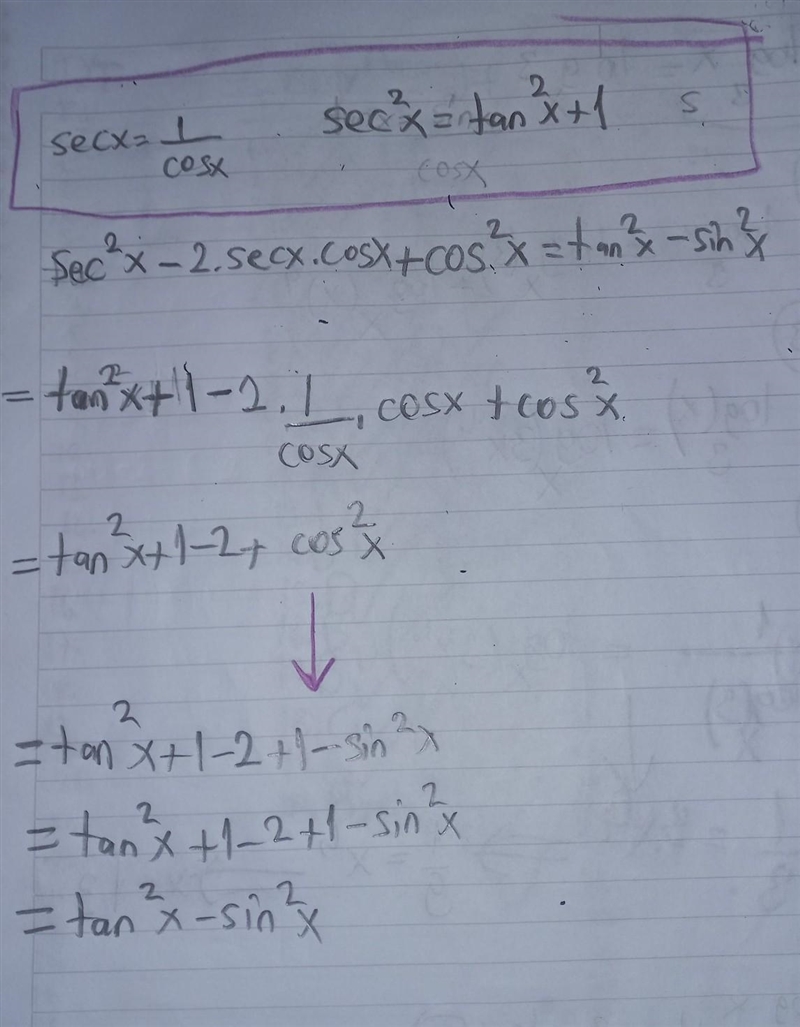 secx = 1/cosx   sec²x = tan²x + 1   s
cosx
sec²x - 2.secx.cosx + cos²x = tan²x - sin²x
= tan²x + 1 - 2 . 1/cosx . cosx + cos²x
= tan²x + 1 - 2 + cos²x
= tan²x + 1 - 2 + 1 - sin²x
= tan²x + 1 - 2 + 1 - sin²x
= tan²x - sin²x